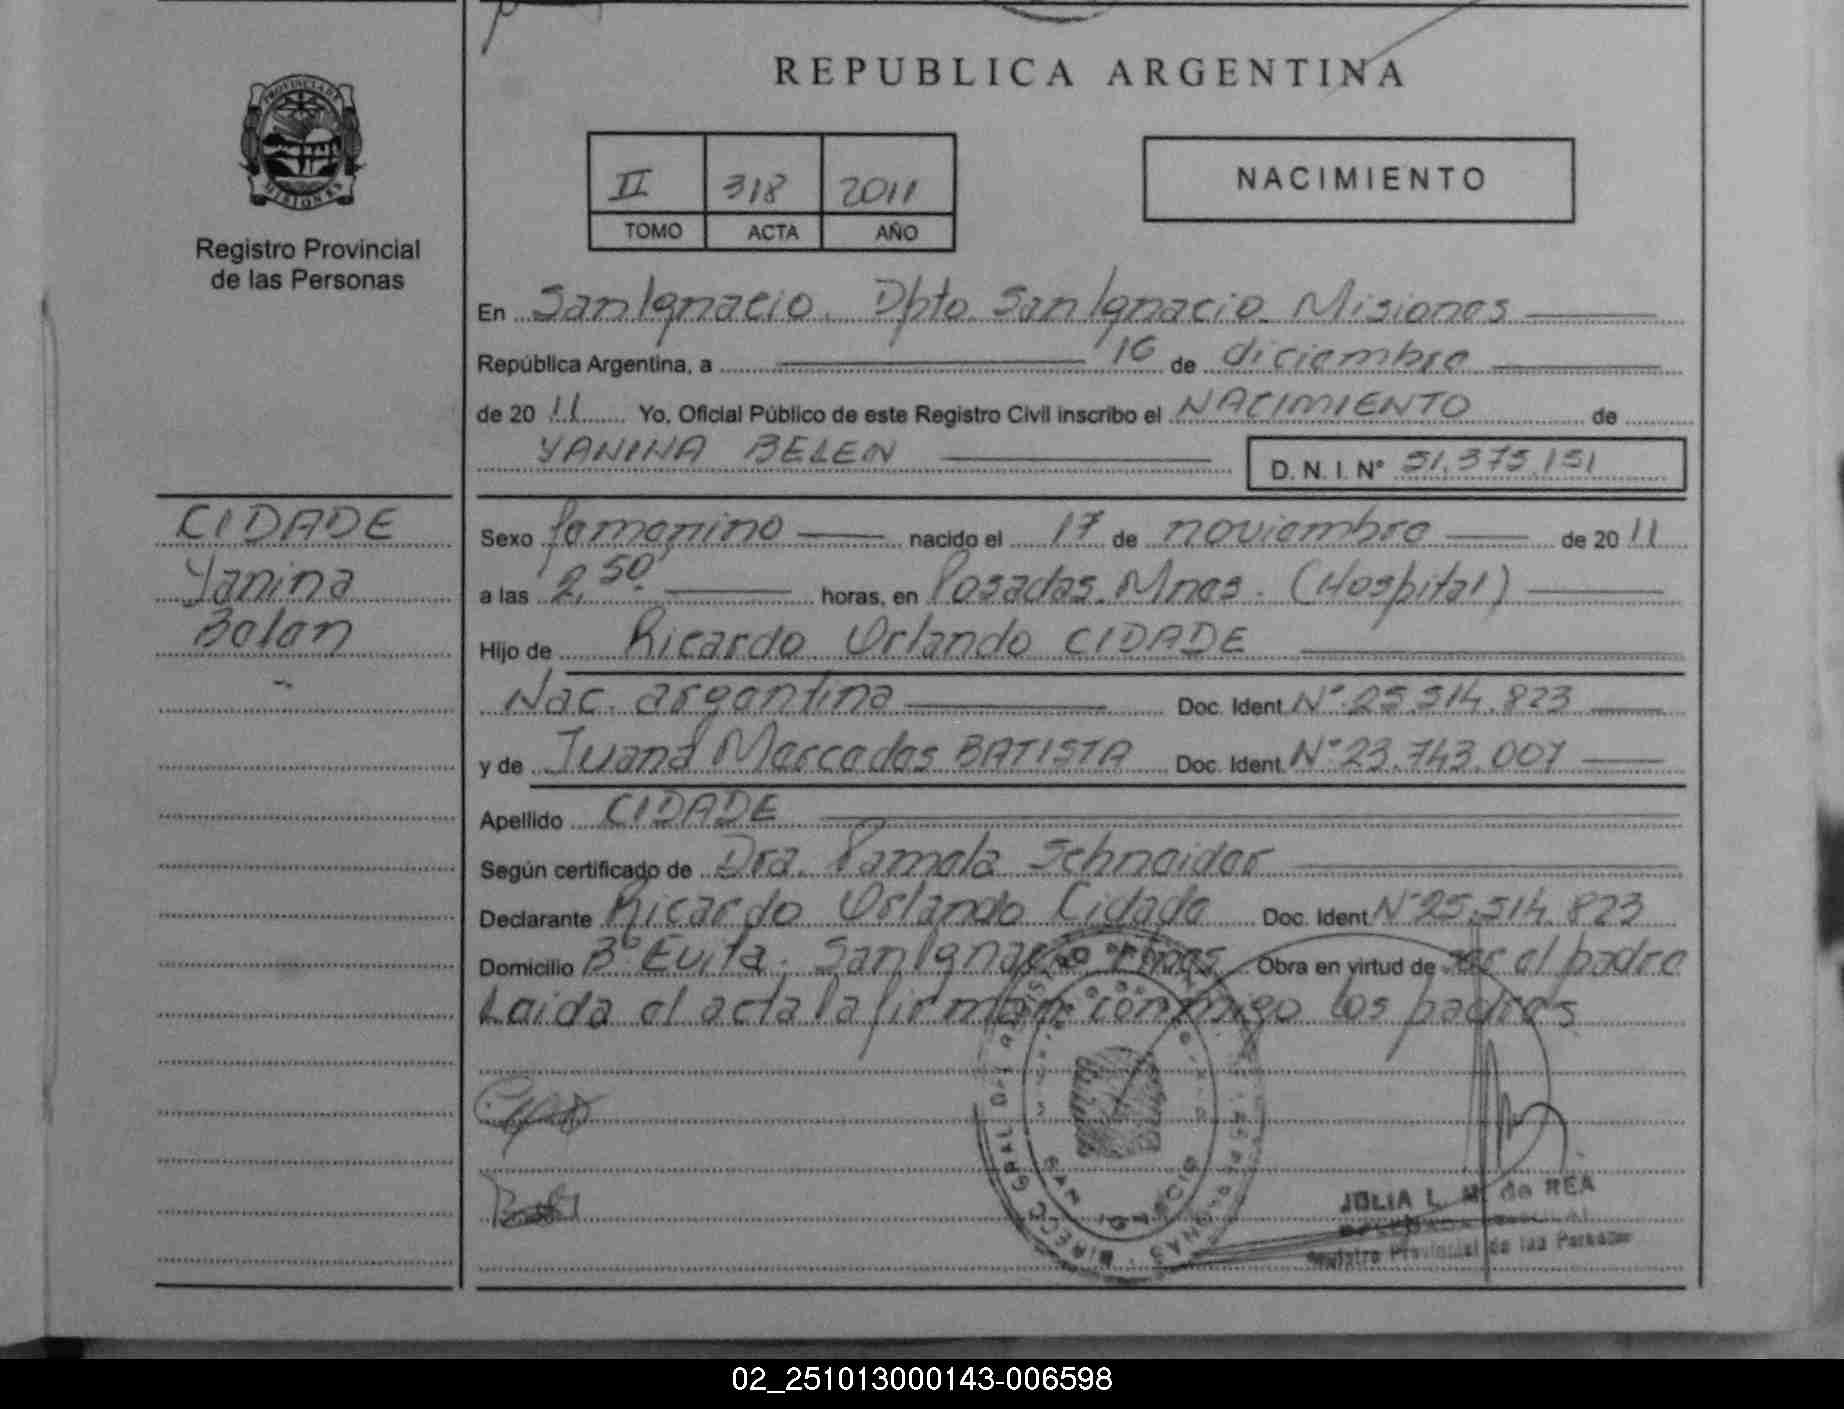 REPUBLICA ARGENTINA
PROVINCIA DE
MISIONES
Registro Provincial
de las Personas
II 318 2011
TOMO ACTA AÑO
NACIMIENTO
En San Ignacio. Dpto. San Ignacio. Misiones
República Argentina, a 16 de diciembre
de 2011 Yo, Oficial Público de este Registro Civil inscribo el NACIMIENTO de
YANINA BELEN D. N. I. N° 51.375.151
CIDADE
Yanina
Belen
Sexo femenino nacido el 17 de noviembre de 2011
a las 2,50. horas, en Posadas. Mnes. (Hospital)
Hijo de Ricardo Orlando CIDADE
Nac. argentina Doc. Ident. N° 25.514.823
y de Juana Mercedes BATISTA Doc. Ident. N° 23.743.007
Apellido CIDADE
Según certificado de Dra. Pamela Schneider
Declarante Ricardo Orlando Cidade Doc. Ident. N° 25.514.823
Domicilio B° Evita. San Ignacio Mnes Obra en virtud de ser el padre
Leida el acta la firman conmigo los padres
JULIA L. M. de REA
Registro Provincial de las Personas
02_251013000143-006598